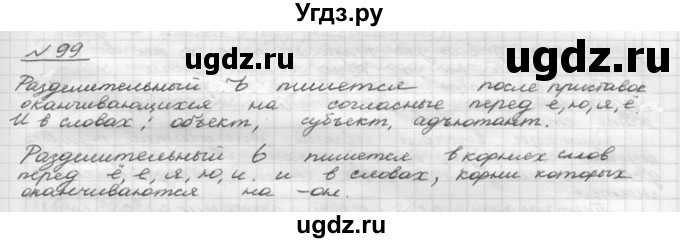 Угдз.ру
ugdz.ru
ugdz.ru
№ 99
Разделительный ъ пишется после приставок
оканчивающихся на согласные перед е, ю, я, ё.
И в словах: объект, субъект, адъютант.
ugdz.ru
Разделительный ь пишется в корнях слов
перед ё, е, я, ю, и. и в словах, корни которых
оканчиваются на -он.
ugdz.ru
ugdz.ru